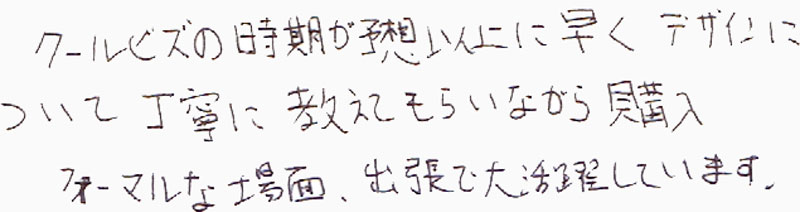 クールビズの時期が予想以上に早くデザインに
ついて丁寧に教えてもらいながら購入
フォーマルな場面、出張で大活躍しています。